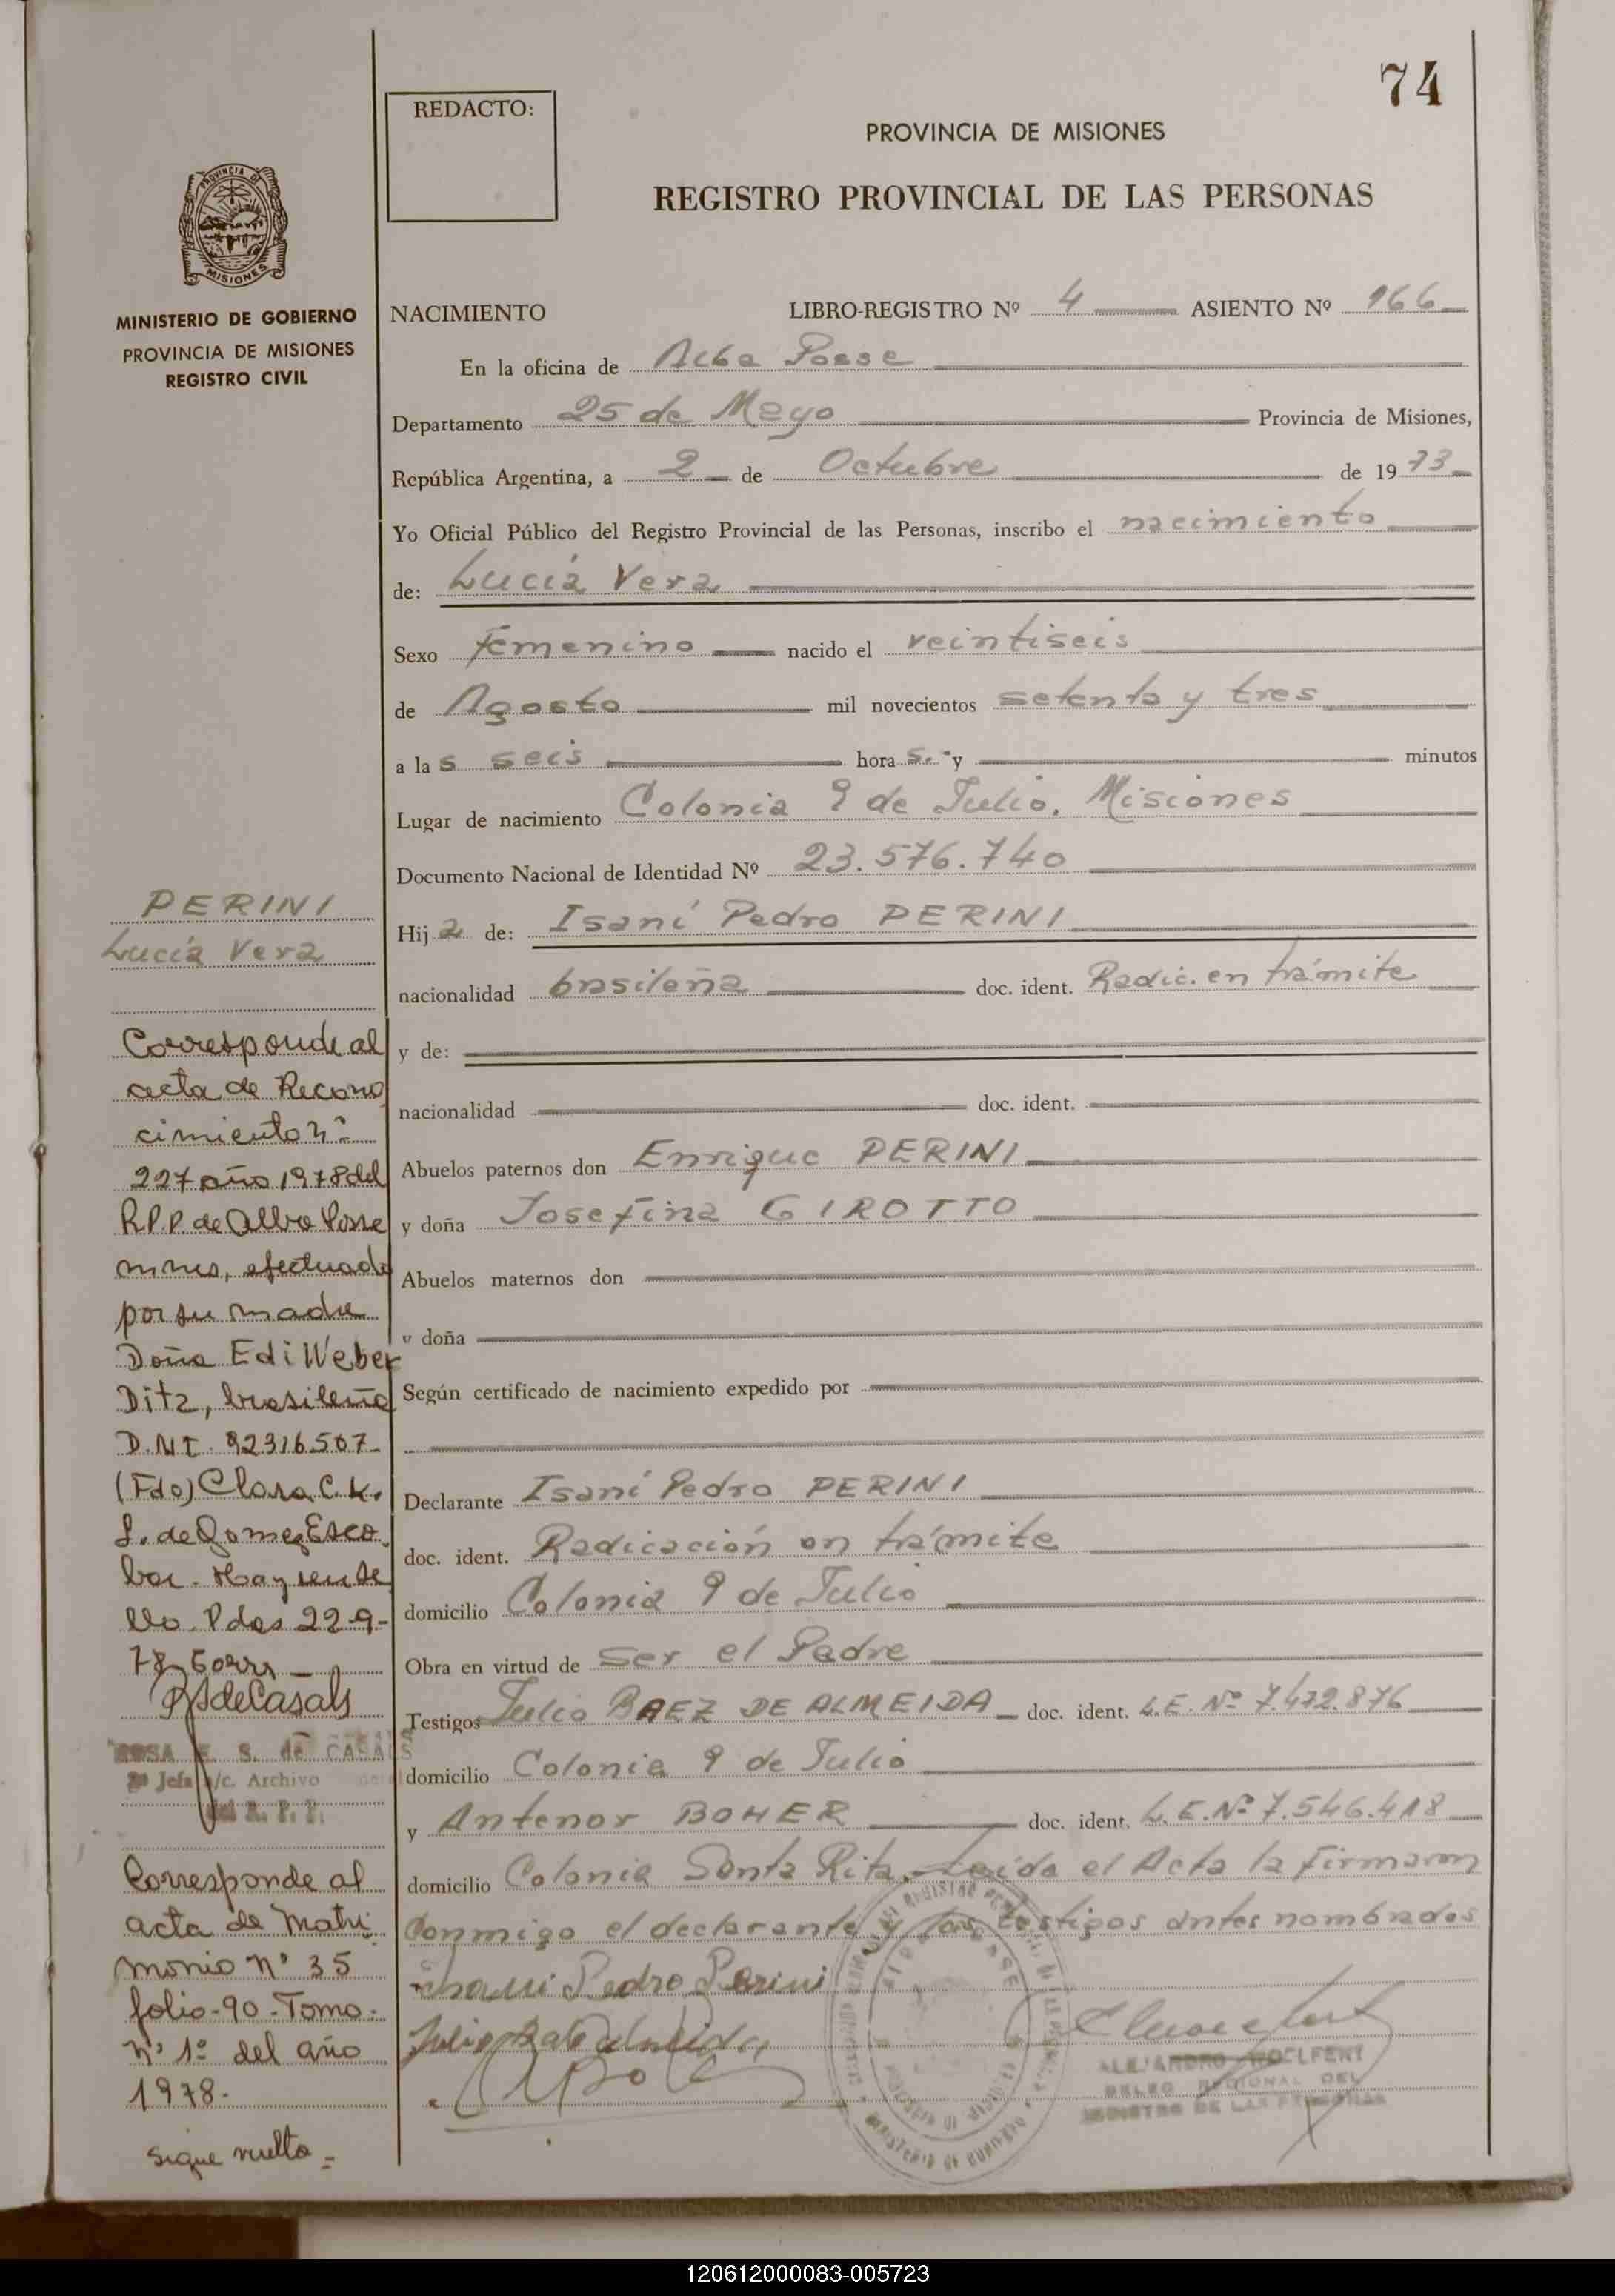 74
REDACTO:
PROVINCIA DE MISIONES
REGISTRO PROVINCIAL DE LAS PERSONAS
PROVINCIA DE
MISIONES
MINISTERIO DE GOBIERNO
PROVINCIA DE MISIONES
REGISTRO CIVIL
NACIMIENTO LIBRO-REGISTRO Nº 4 ASIENTO Nº 166
En la oficina de Alba Posse
Departamento 25 de Mayo Provincia de Misiones,
República Argentina, a 2 de Octubre de 1973
Yo Oficial Público del Registro Provincial de las Personas, inscribo el nacimiento
de: Lucía Vera
Sexo femenino nacido el veintiseis
de Agosto mil novecientos setenta y tres
a las seis horas.- y minutos
Lugar de nacimiento Colonia 9 de Julio, Misiones
Documento Nacional de Identidad Nº 23.576.740
Hija de: Isaní Pedro PERINI
nacionalidad brasileña doc. ident. Radic. en trámite
y de:
nacionalidad doc. ident.
Abuelos paternos don Enrique PERINI
y doña Josefina GIROTTO
Abuelos maternos don
y doña
Según certificado de nacimiento expedido por
Declarante Isaní Pedro PERINI
doc. ident. Radicación en trámite
domicilio Colonia 9 de Julio
Obra en virtud de ser el Padre
Testigos Julio BAEZ DE ALMEIDA doc. ident. L.E. Nº 7.472.876
domicilio Colonia 9 de Julio
y Antenor BOHER doc. ident. L.E. Nº 7.546.418
domicilio Colonia Santa Rita. Leída el Acta la firmaron
conmigo el declarante y los testigos antes nombrados
Pedro Perini
ALEJANDRO WOLFENT
DELEG REGIONAL DEL
REGISTRO DE LAS PERSONAS
PERINI
Lucía Vera
Corresponde al
acta de Recono
cimiento nº
227 año 1978 del
R.P.P. de Alba Posse
mnes, efectuado
por su madre
Doña Edi Weber
Ditz, brasileña
D.N.I. 92316507
(Fdo) Clara C. K.
S. de Gomez Esco
bar. Hay un se
llo. Pdas 22-9-
78
RSdeCasals
ROSA E. S. de CASALS
Jefa a/c. Archivo
del R. P. P.
Corresponde al
acta de Matri
monio nº 35
folio-90-Tomo-
nº 1º del año
1978.
Sigue vuelta =
120612000083-005723